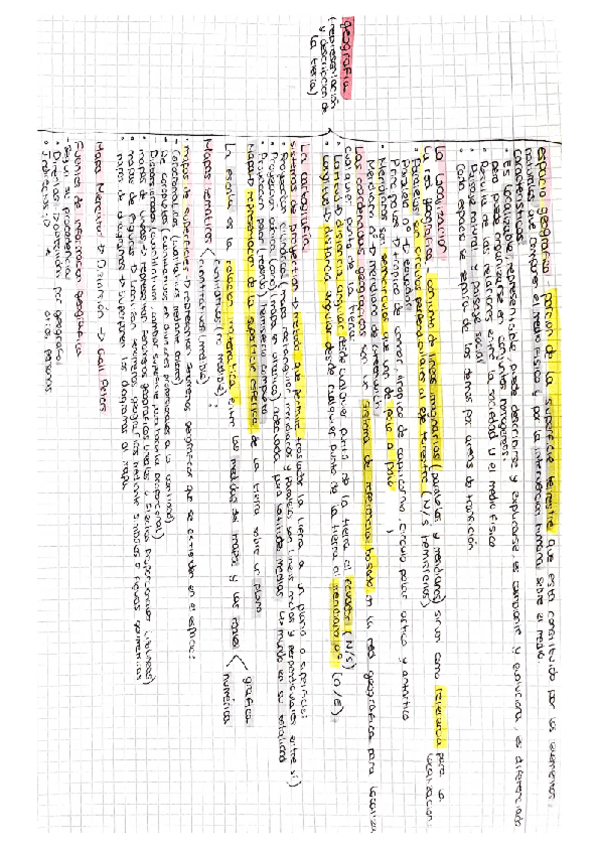 geografía
(representación
y descripción de
la tierra)
espacio geográfico: porción de la superficie terrestre que está constituido por los elementos
naturales que componen el medio físico y por la intervención humana sobre el medio
Características:
• Es localizable, representable, puede describirse y explicarse, es cambiante y evoluciona, es diferenciado
pero puede organizarse en conjuntos homogéneos
• Resulta de las relaciones entre la sociedad y el medio físico
• Paisaje natural y paisaje social
• Cada espacio se separa de los demás por áreas de transición
La localización
La red geográfica → conjunto de líneas imaginarias (paralelos y meridianos) sirven como referencia para la localización
• Paralelos son círculos perpendiculares al eje terrestre (N/S hemisferios)
Paralelo 0º → ecuador
Principales → trópico de cáncer, trópico de capricornio, círculo polar ártico y antártico
• Meridianos son semicírculos que van de polo a polo
Meridiano 0º → meridiano de Greenwich
Las coordenadas geográficas son un sistema de referencia basado en la red geográfica para localizar
cualquier punto de la tierra
• Latitud → distancia angular desde cualquier punto de la tierra al ecuador (N/S)
• Longitud → distancia angular desde cualquier punto de la tierra al meridiano 0º (O/E)
La cartografía
sistemas de proyección → método que permite trasladar la tierra a un plano o superficie:
• Proyección cilíndrica (mapa rectangular, meridianos y paralelos son líneas rectas y perpendiculares entre sí)
• Proyección cónica (cono) (mapa en abanico) adecuada para latitudes medias → mundo en su totalidad
• Proyección polar (redondo) hemisferio completo
Mapa → representación de la superficie esférica de la tierra sobre un plano
La escala es la relación matemática entre las medidas del mapa y las reales < gráfica
numérica
Mapas temáticos < cualitativos (no medible)
cuantitativos (medible)
• mapas de superficies → representan fenómenos geográficos que se extienden en el espacio:
- Corocromáticos (cualitativos mediante colores)
• mapas de líneas → representan fenómenos geográficos lineales
• mapas de figuras → localizan fenómenos geográficos mediante símbolos o figuras geométricas
• mapas de diagramas → superponen los diagramas al mapa
Mapa Mercator → Distorsión → Gall Peters
Fuentes de información geográfica
- Según su procedencia
• Directas: obtenidas por geógrafos
• Indirectas: otras personas